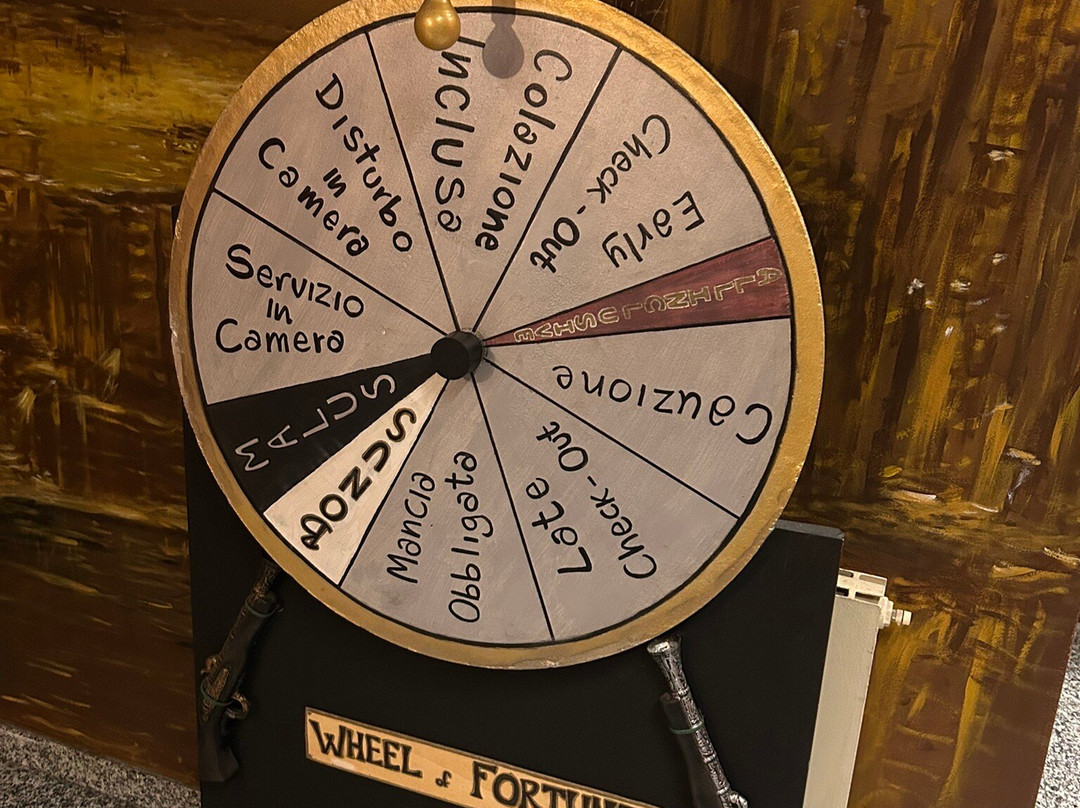 Colazione
Inclusa
Early
Check-Out
ALLINCLUSIVE
Cauzione
Late
Check-Out
Mancia
Obbligata
BONUS
MALUS
Servizio
in
Camera
Disturbo
in
Camera
WHEEL of FORTUN